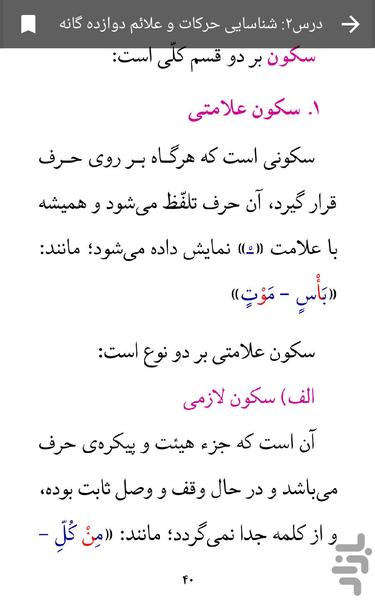 درس۲: شناسایی حرکات و علائم دوازده گانه
سکون بر دو قسم کلّی است:
۱. سکون علامتی
سکونی است که هرگـاه بـر روی حـرف
قرار گیرد، آن حرف تلفّظ می‌شود و همیشه
با علامت «ـْ» نمایش داده می‌شود؛ مانند:
«بَأْسٍ – مَوْتٍ»
سکون علامتی بر دو نوع است:
الف) سکون لازمی
آن است که جزء هیئت و پیکره‌ی حرف
می‌باشد و در حال وقف و وصل ثابت بوده،
و از کلمه جدا نمی‌گردد؛ مانند: «مِنْ كُلِّ –
۴۰
بازار